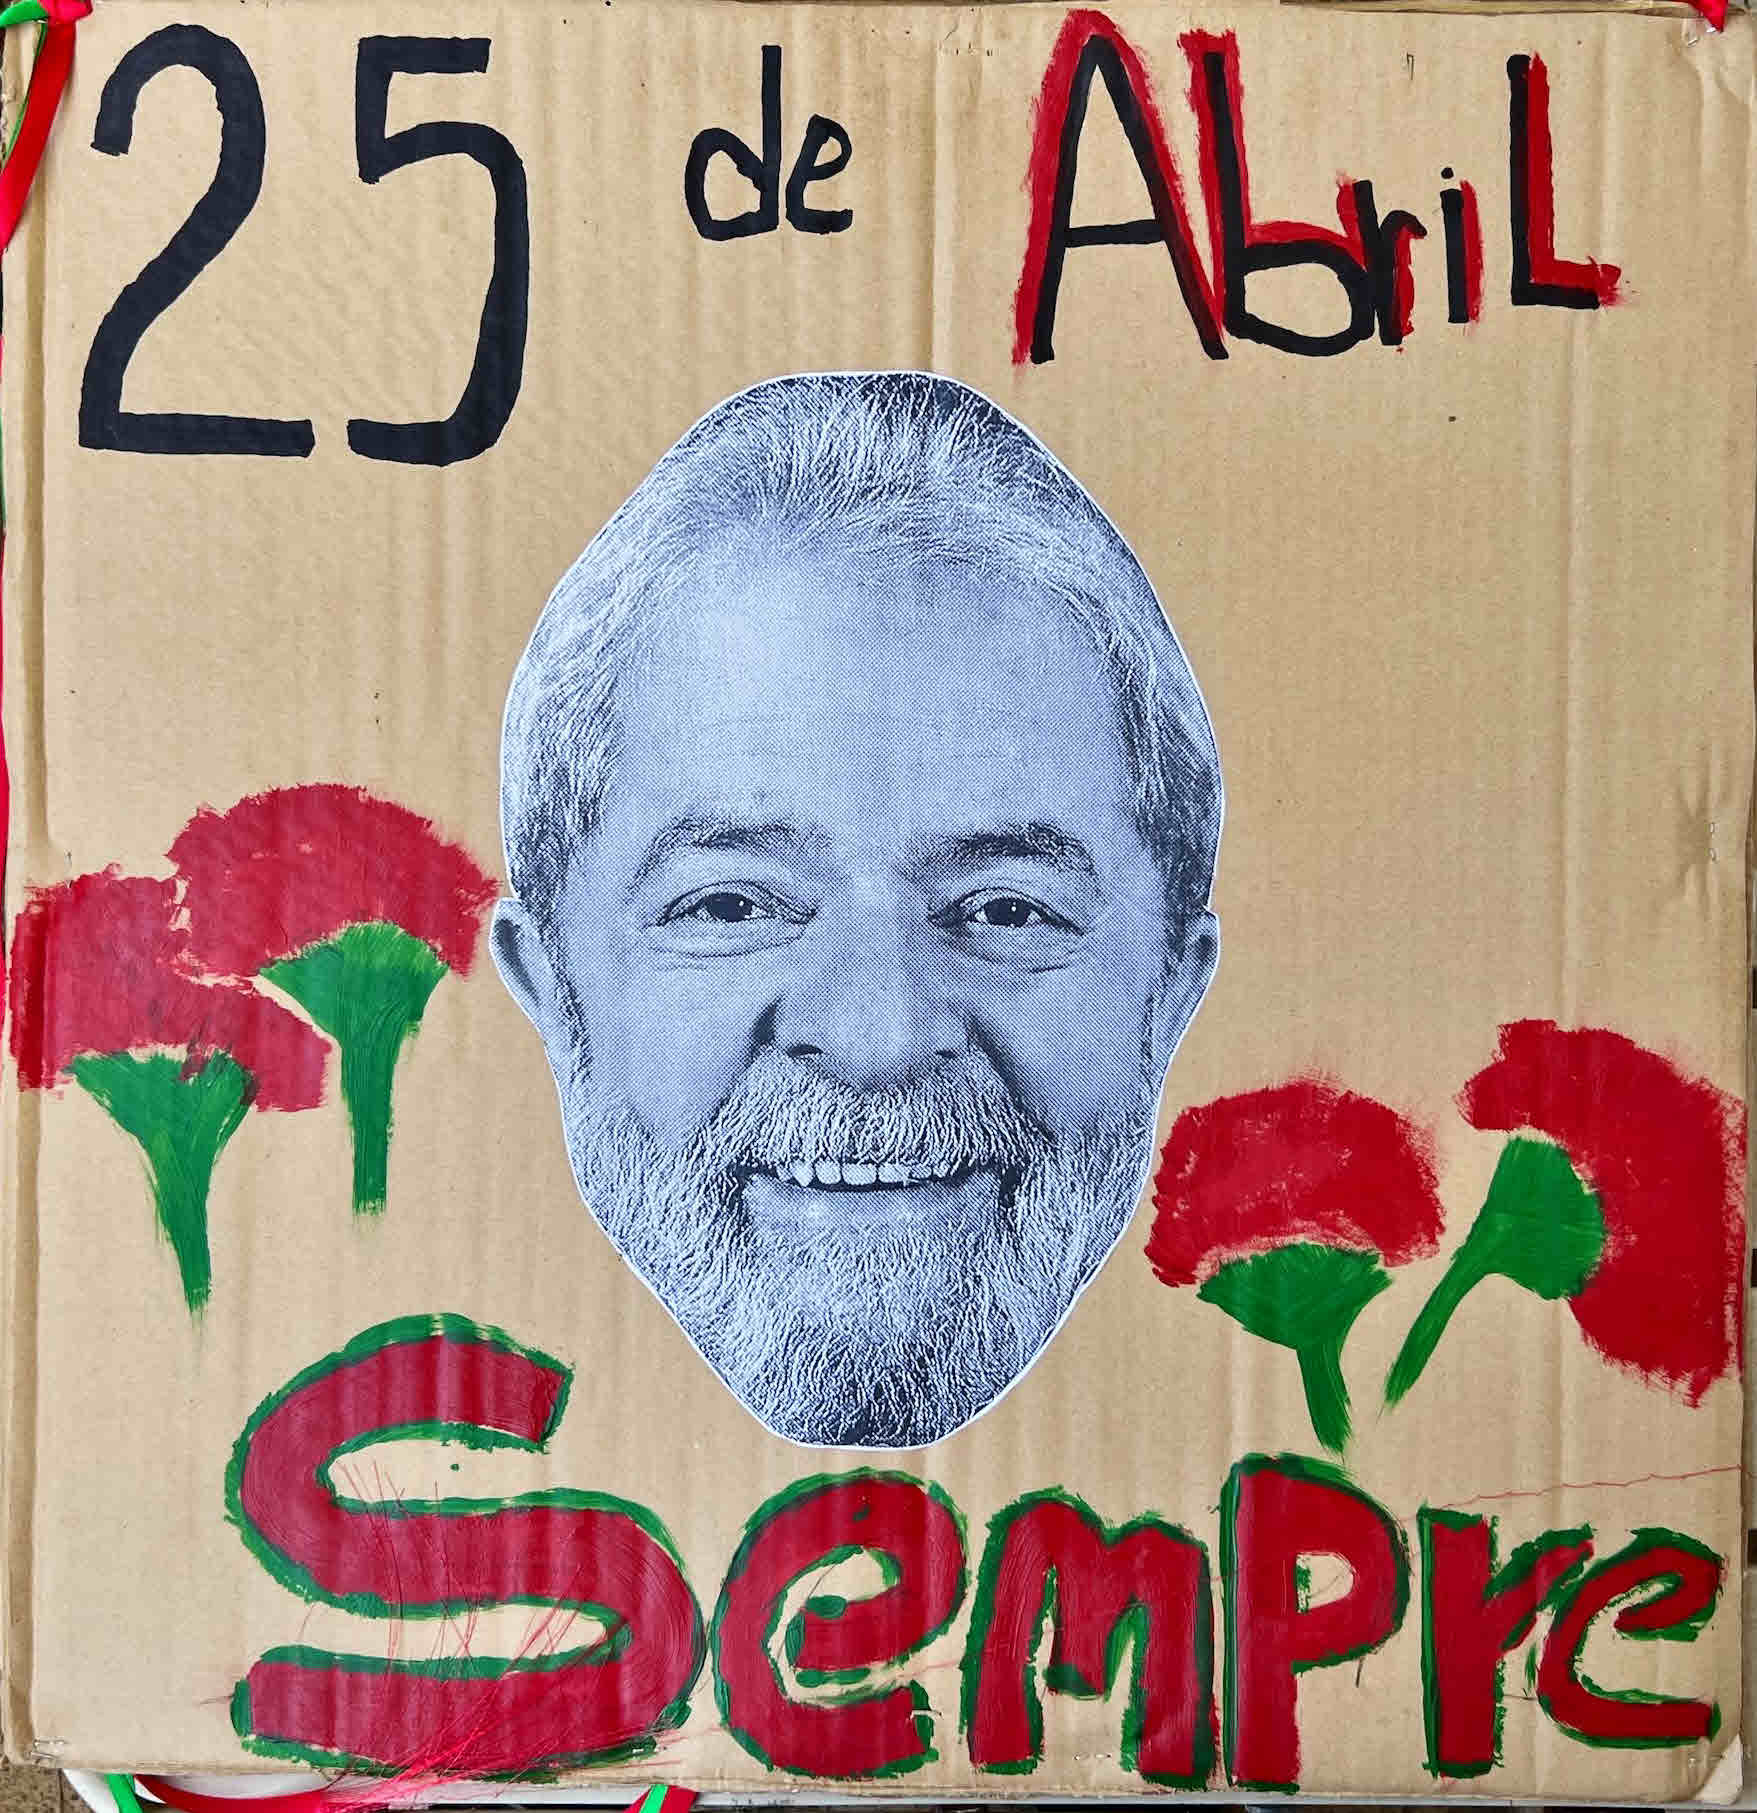 25 de Abril
Sempre